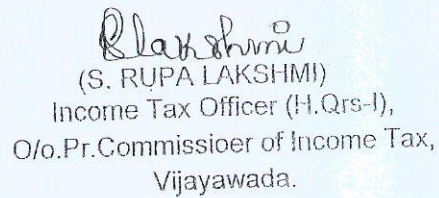 RLakshmi
(S. RUPA LAKSHMI)
Income Tax Officer (H.Qrs-I),
O/o.Pr.Commissioer of Income Tax,
Vijayawada.